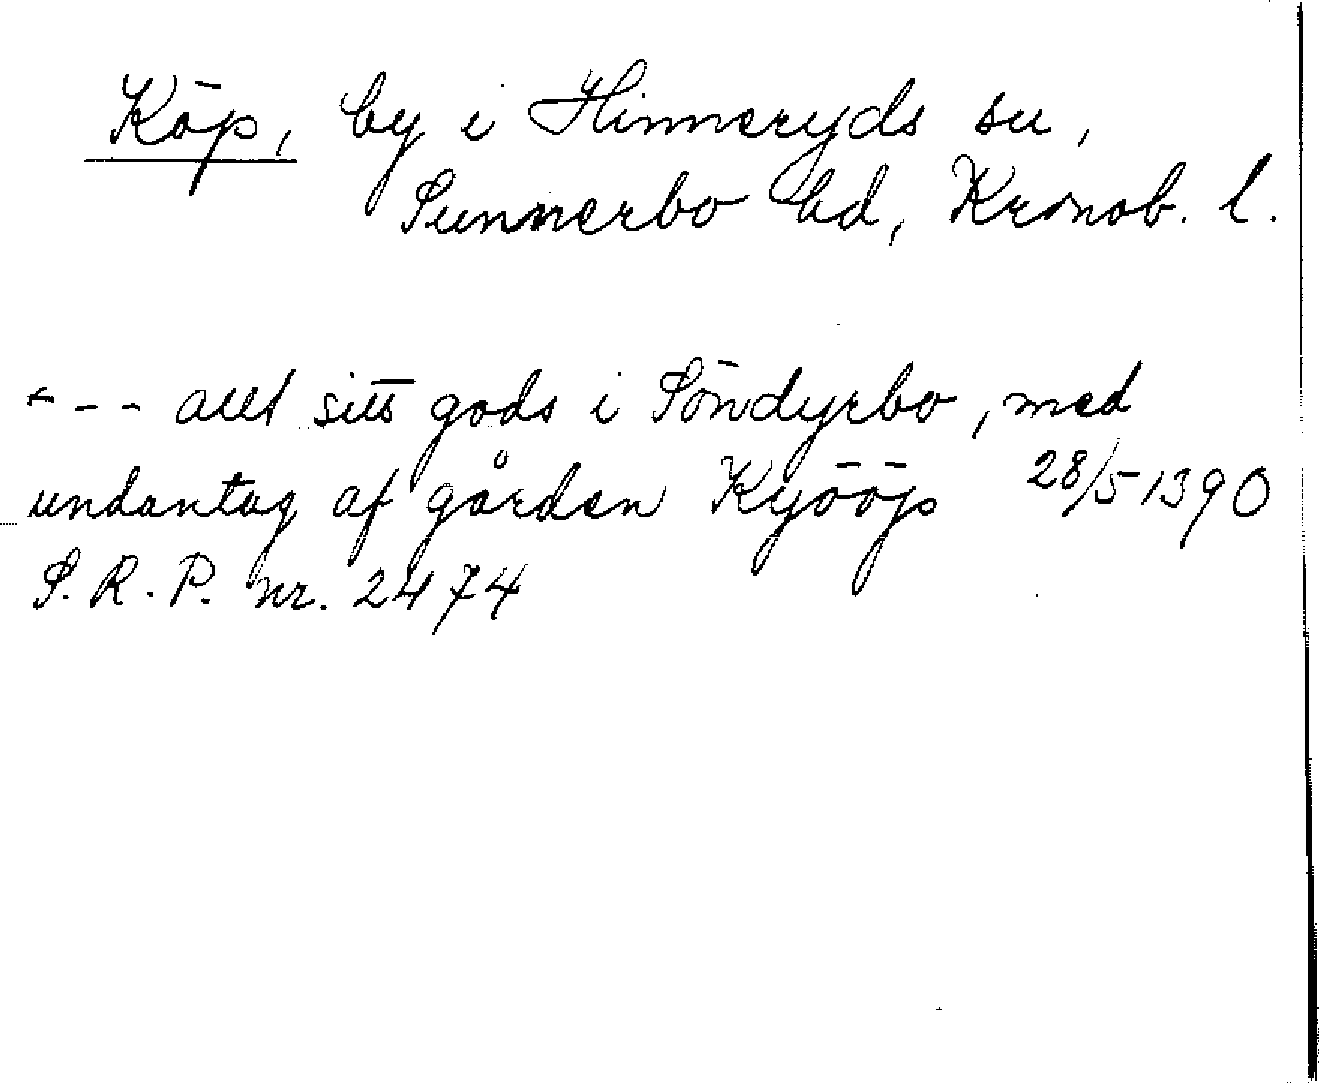 Köp, by i Hinneryds sn,
Sunnerbo hd, Kronob. l.
- - - allt sitt gods i Söndyrbo, med
undantag af gården Kyööp 28/5 1390
S. R. P. nr. 2474